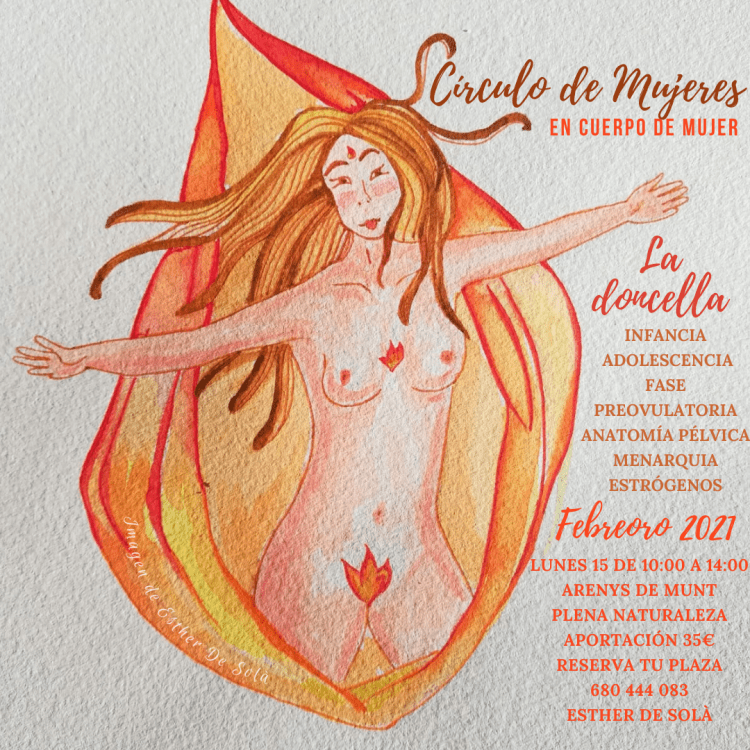 Círculo de Mujeres
EN CUERPO DE MUJER
La
doncella
INFANCIA
ADOLESCENCIA
FASE
PREOVULATORIA
ANATOMÍA PÉLVICA
MENARQUIA
ESTRÓGENOS
Febreoro 2021
LUNES 15 DE 10:00 A 14:00
ARENYS DE MUNT
PLENA NATURALEZA
APORTACIÓN 35€
RESERVA TU PLAZA
680 444 083
ESTHER DE SOLÀ
Imagen de Esther De Solà